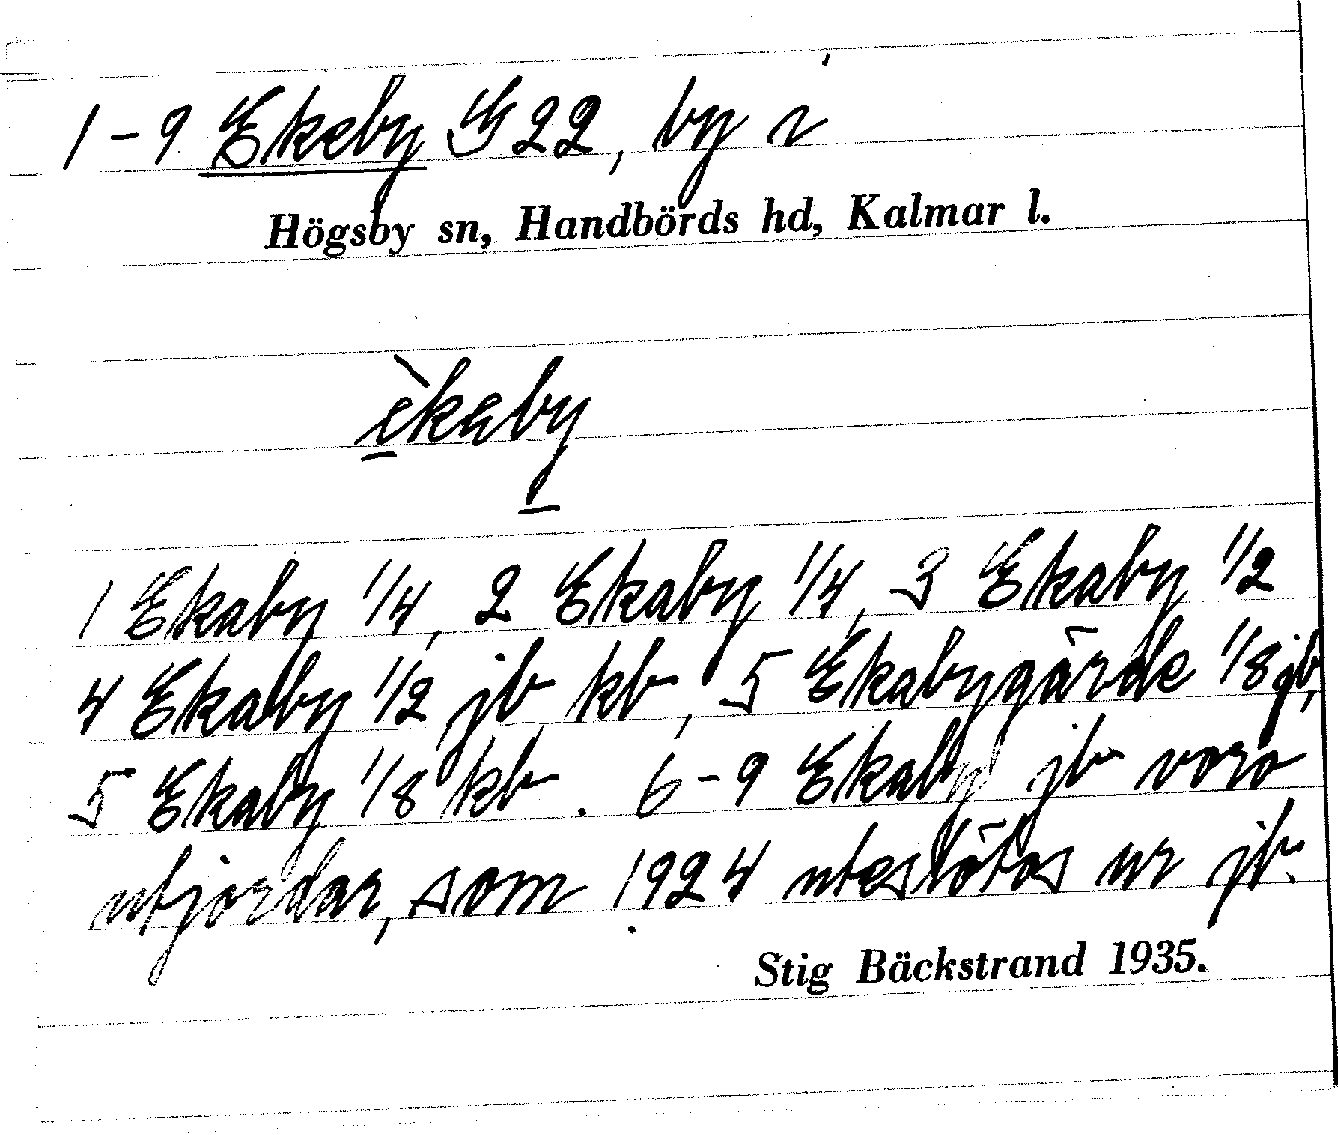 1-9 Ekeby G 22, by i
Högsby sn, Handbörds hd, Kalmar l.
èkaby
1 Ekaby 1/4, 2 Ekaby 1/4, 3 Ekaby 1/2
4 Ekaby 1/2 jb kb, 5 Ekabygärde 1/8 jb,
5 Ekaby 1/8 kb. 6-9 Ekaby jb voro
utjordar, som 1924 uteslötos ur jb.
Stig Bäckstrand 1935.